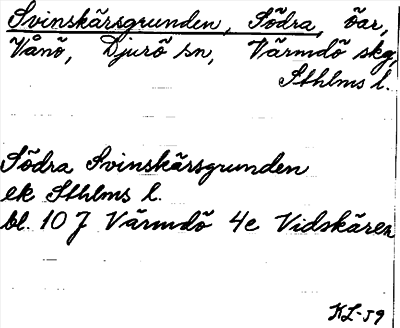 Svinskärsgrunden, Södra, öar,
Vånö, Djurö sn, Värmdö skg,
Sthlms l.
Södra Svinskärsgrunden
ek Sthlms l.
bl. 10 J Värmdö 4e Vidskären
KL-59